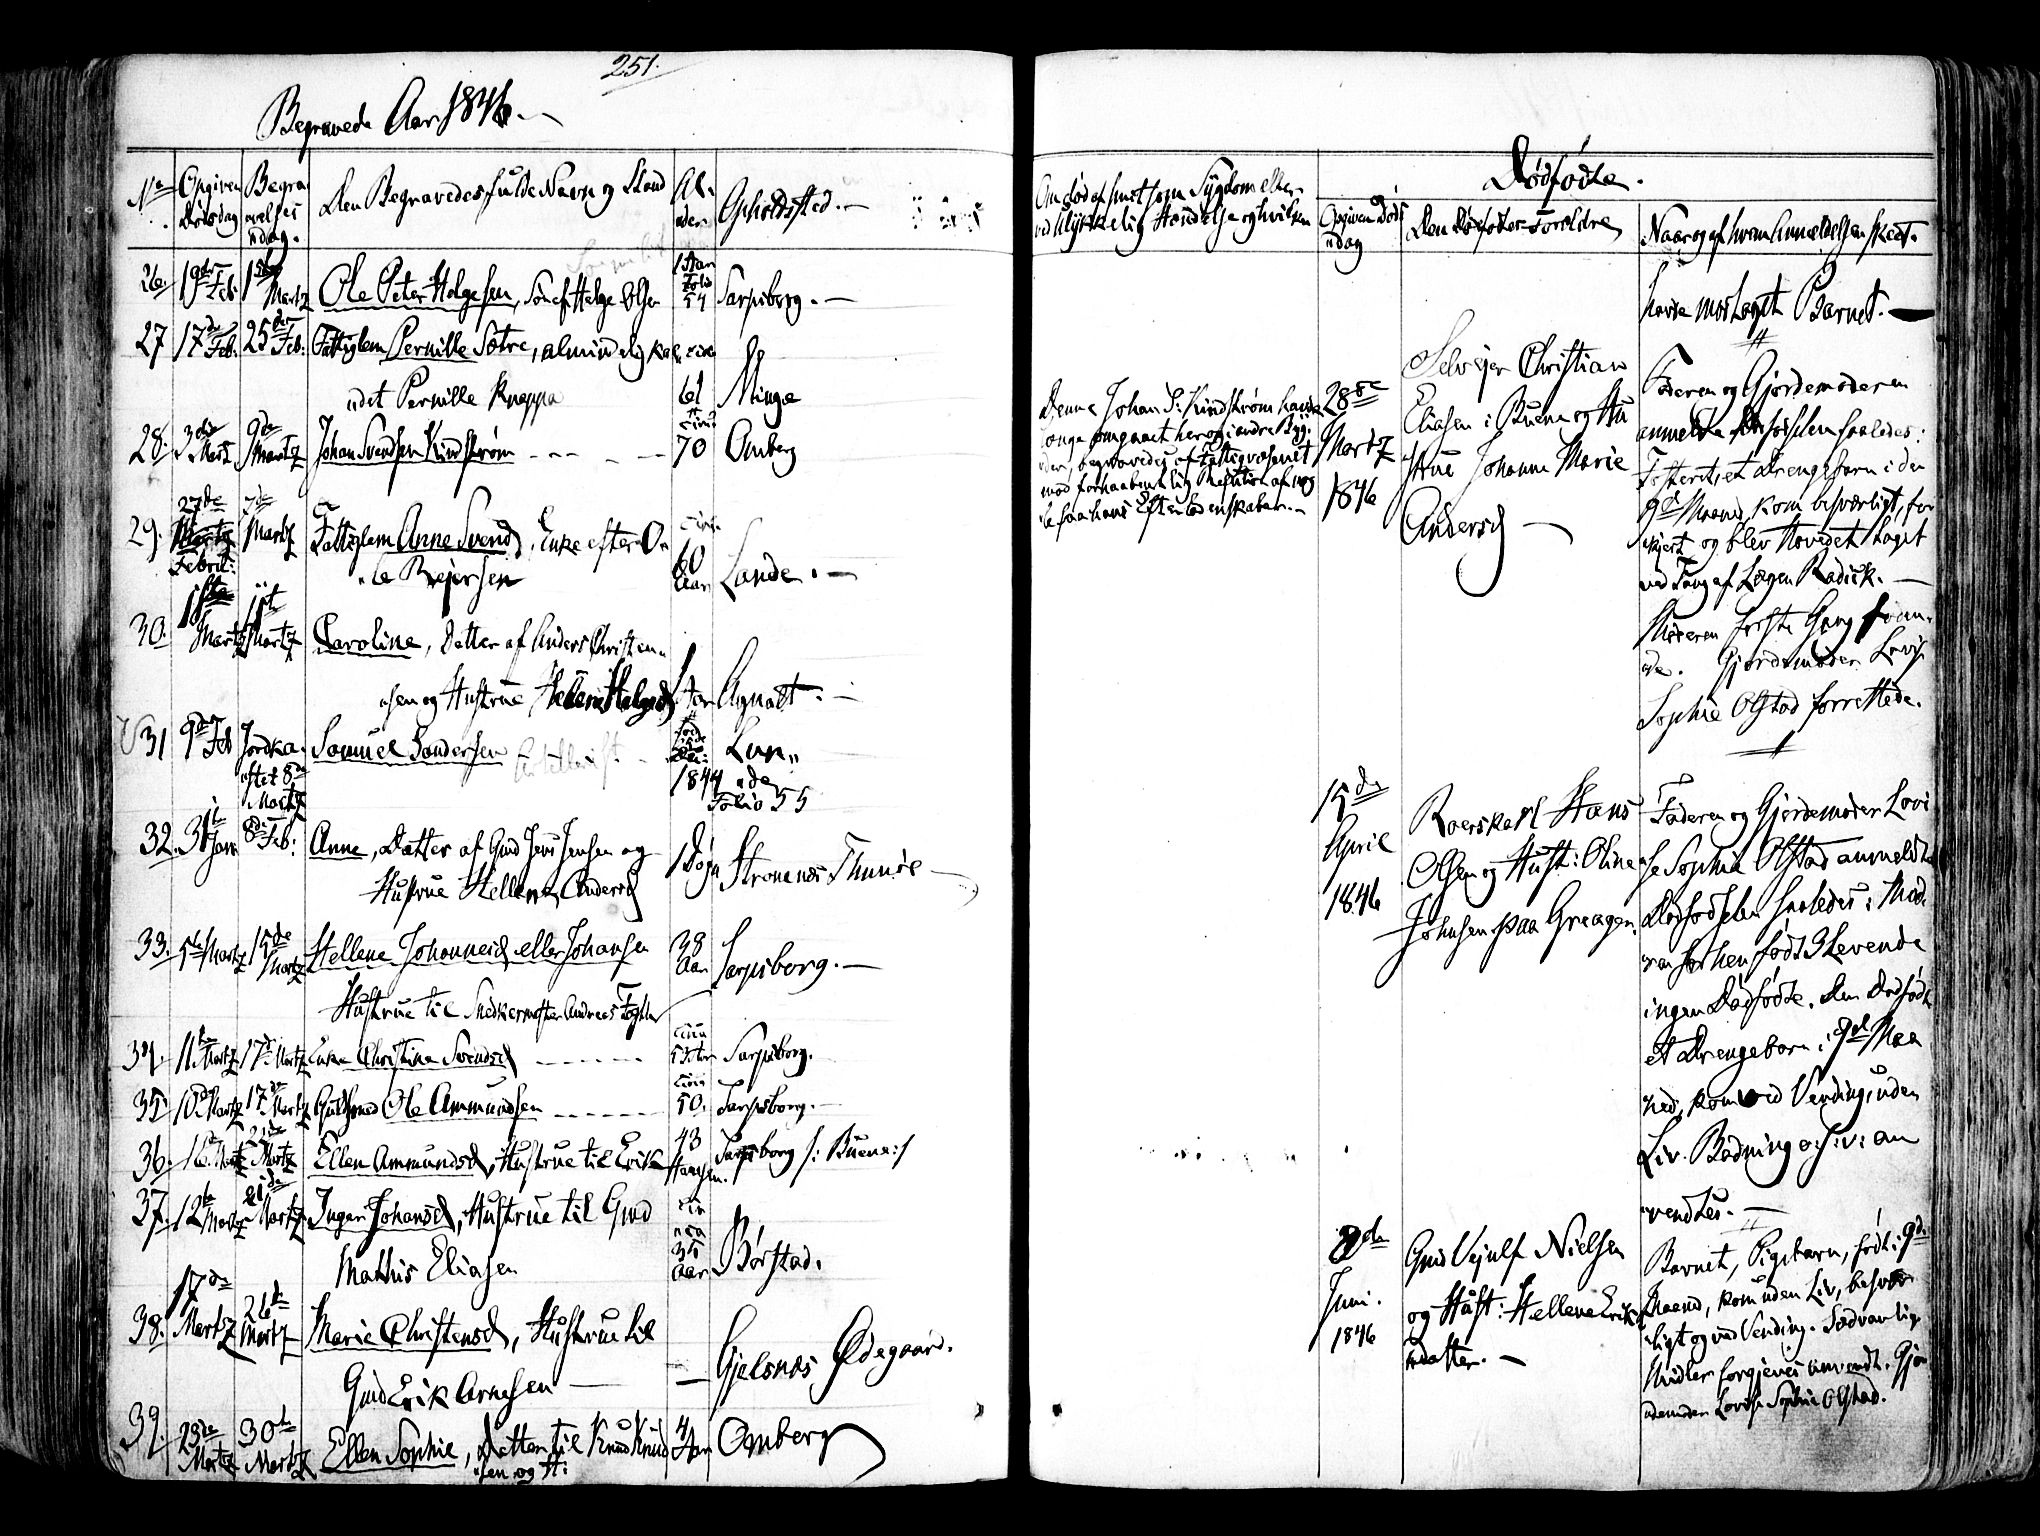 251.
Begravede Aar 1846.
No
Opgiven Dødsdag
Begravelsesdag.
Den Begravedes fulde Navn og Stand
Alder
Opholdssted.
26. 19de Feb. 1ste Martz Ole Peter Helgesen, Søn af Helge Olsen 1 Aar Folio 54 Sarpsborg.
27 17de Feb: 25de Feb: Fattiglem Pernille Sætre, almindelig kal-
det Pernille Knappa 61 Minge
28. 3die Martz 9de Martz Johan Svendsen Kindstrøm circa 70 Omberg
29. 27de Februar 7de Martz Fattiglem Anne Svends, Enke efter O-
le Rejersen circa 60 Aar Lande.
30. 1ste Martz Martz Caroline, Datter af Anders Christen-
sen og Hustrue Helene Helgesd 1 Aar Agnalt.
31 9de Feb Jordkastet 8de Martz Samuel Sandersen 1844 Folio 55 Lande
32. 31te Jan 8de Feb: Anne, Datter af Gmd Jens Jensen og
Hustrue Hellene Andersd 1 Døgn Strønenæs Thunøe
33. 5te Martz 15de Martz Hellene Johannesd eller Johansen 38 Aar Sarpsborg.
Hustrue til Snedkermester Andreas
34. 11te Martz 17de Martz Enke Christine Svendsd circa 53 Aar Sarpsborg.
35. 10de Martz 17de Martz Guldsmed Ole Ammundsen circa 50. Sarpsborg.
36. 16de Martz 21de Martz Ellen Ammundsd, Hustrue til Erik Hansen. 43 Sarpsborg /: Buene :/
37. 12te Martz 21de Martz Inger Johansd, Hustrue til Gmd
Mathis Eliasen circa 35 Aar Børstad.
38. 17de Martz 26de Martz Marie Christensd, Hustrue til
Gmd Erik Arnesen — Gjelsnæs Ødegaard.
39. 23de Martz 30te Martz Ellen Sophie, Datter til Knud Knud-
sen og H: 4 Aar Omberg
Om død af smitsom Sygdom eller
ved ulykkelig Hændelse og hvilken
Denne Johan S: Kindstrøm havde
længe omgaaet her og i andre Byg-
der, begravedes af Fattigvæsenet
mod forhaabentlig Refution af
hans Efterladenskaber.
Dødfødte.
Opgiven Dødsdag
Den Dødfødtes Forældre
Naar og af hvem Anmældelsen skeet.
havde modtaget Barnet.
28de
Martz
1846
Selvejer Christian
Eliasen i Buene og Hu-
strue Johanne Marie
Andersd
Faderen og Gjordemoderen
anmeldte Fødselen saaledes:
Fosteret, et Drengebarn i den
9de Maaned, kom besværligt, for-
kjert og blev Hovedet taget
ved Tang af Lægen Radick.
Moderen første Gang
Gjordemoder Lovise
Sophie Olstad forrettede.
15de
April
1846
Raerskarl Hans
Olsen og Hust: Oline
Johnsen paa Greager.
Faderen og Gjordemoder Lovi-
se Sophia Olstad anmeldte
Dødfødselen saaledes: Mode-
ren før hen født 3 Levende
ingen Dødfødte. Den Dødfødte
et Drengebarn i 9de Maa-
ned, kom ved Vending, uden
Liv. Badning o: s: v: an-
vendtes.
2den
Juni.
1846
Gmd Vejulf Nielsen
og Hust: Hellene Eriks-
datter.
Barnet, Pigebarn, født i 9de
Maaned, kom uden Liv, besvær-
ligt og ved Vending. Sædvanlige
Midler forgjeves anvendt. Gjor-
demoder Lovise Sophie Olstad.